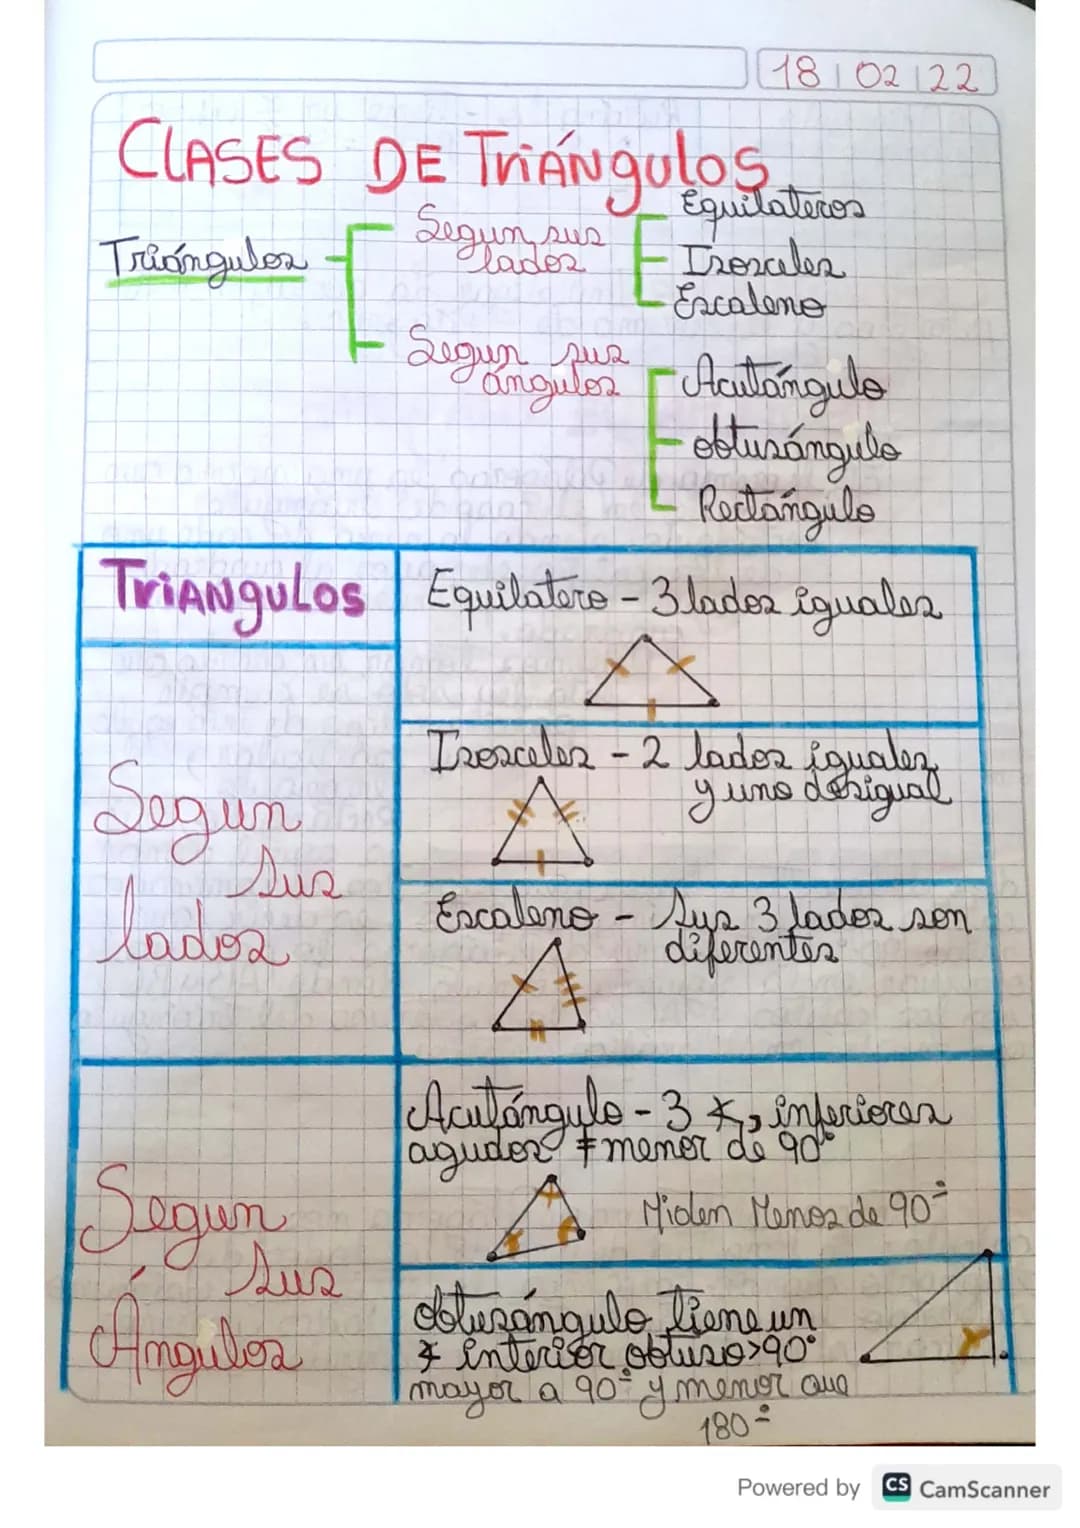 18 | 02 | 22
CLASES DE TriÁNgulos
Triángulos
Segun sus
lados
Equilateros
Isosceles
Escaleno
Segun sus
ángulos
Acutángulo
obtusángulo
Rectángulo
TriANguLos
Equilatero - 3 lados iguales
Segun
sus
lados
Isosceles - 2 lados iguales
y uno desigual
Escaleno - Sus 3 lados son
diferentes
Segun
sus
Ángulos
Acutángulo - 3 ∡s inferiores
agudos ≠ menor de 90°
Miden Menos de 90°
obtusángulo tiene un
∡ interior obtuso>90°
mayor a 90° y menor que
180°
Powered by CS CamScanner